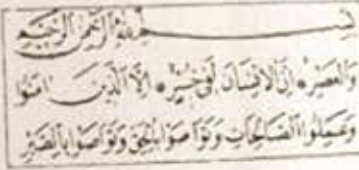 بِسْمِ اللهِ الرَّحْمٰنِ الرَّحِيْمِ
وَالْعَصْرِ ۙ اِنَّ الْاِنْسَانَ لَفِيْ خُسْرٍ ۙ اِلَّا الَّذِيْنَ اٰمَنُوْا
وَعَمِلُوا الصّٰلِحٰتِ وَتَوَاصَوْا بِالْحَقِّ وَتَوَاصَوْا بِالصَّبْرِ